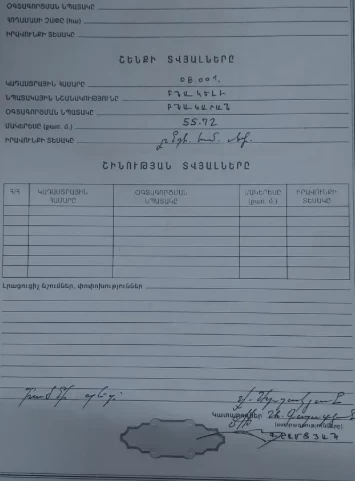 ՕԳՏԱԳՈՐԾՄԱՆ ՆՊԱՏԱԿԸ
ՀՈՂԱՄԱՍԻ ՉԱՓԸ (հա)
ԻՐԱՎՈՒՆՔԻ ՏԵՍԱԿԸ
ՇԵՆՔԻ ՏՎՅԱԼՆԵՐԸ
ԿԱԴԱՍՏՐԱՅԻՆ ՀԱՄԱՐԸ 08 001.
ՆՊԱՏԱԿԱՅԻՆ ՆՇԱՆԱԿՈՒԹՅՈՒՆԸ ԲՆԱԿԵԼԻ
ՕԳՏԱԳՈՐԾՄԱՆ ՆՊԱՏԱԿԸ ԲՆԱԿԱՐԱՆ
ՄԱԿԵՐԵՍԸ (քառ. մ.) 55.72
ԻՐԱՎՈՒՆՔԻ ՏԵՍԱԿԸ
ՇԻՆՈՒԹՅԱՆ ՏՎՅԱԼՆԵՐԸ
Հ/Հ ԿԱԴԱՍՏՐԱՅԻՆ ՀԱՄԱՐԸ ՕԳՏԱԳՈՐԾՄԱՆ ՆՊԱՏԱԿԸ ՄԱԿԵՐԵՍԸ (քառ. մ.) ԻՐԱՎՈՒՆՔԻ ՏԵՍԱԿԸ
Լրացուցիչ նշումներ, փոփոխություններ
Կատարողներ
(ստորագրությունները)